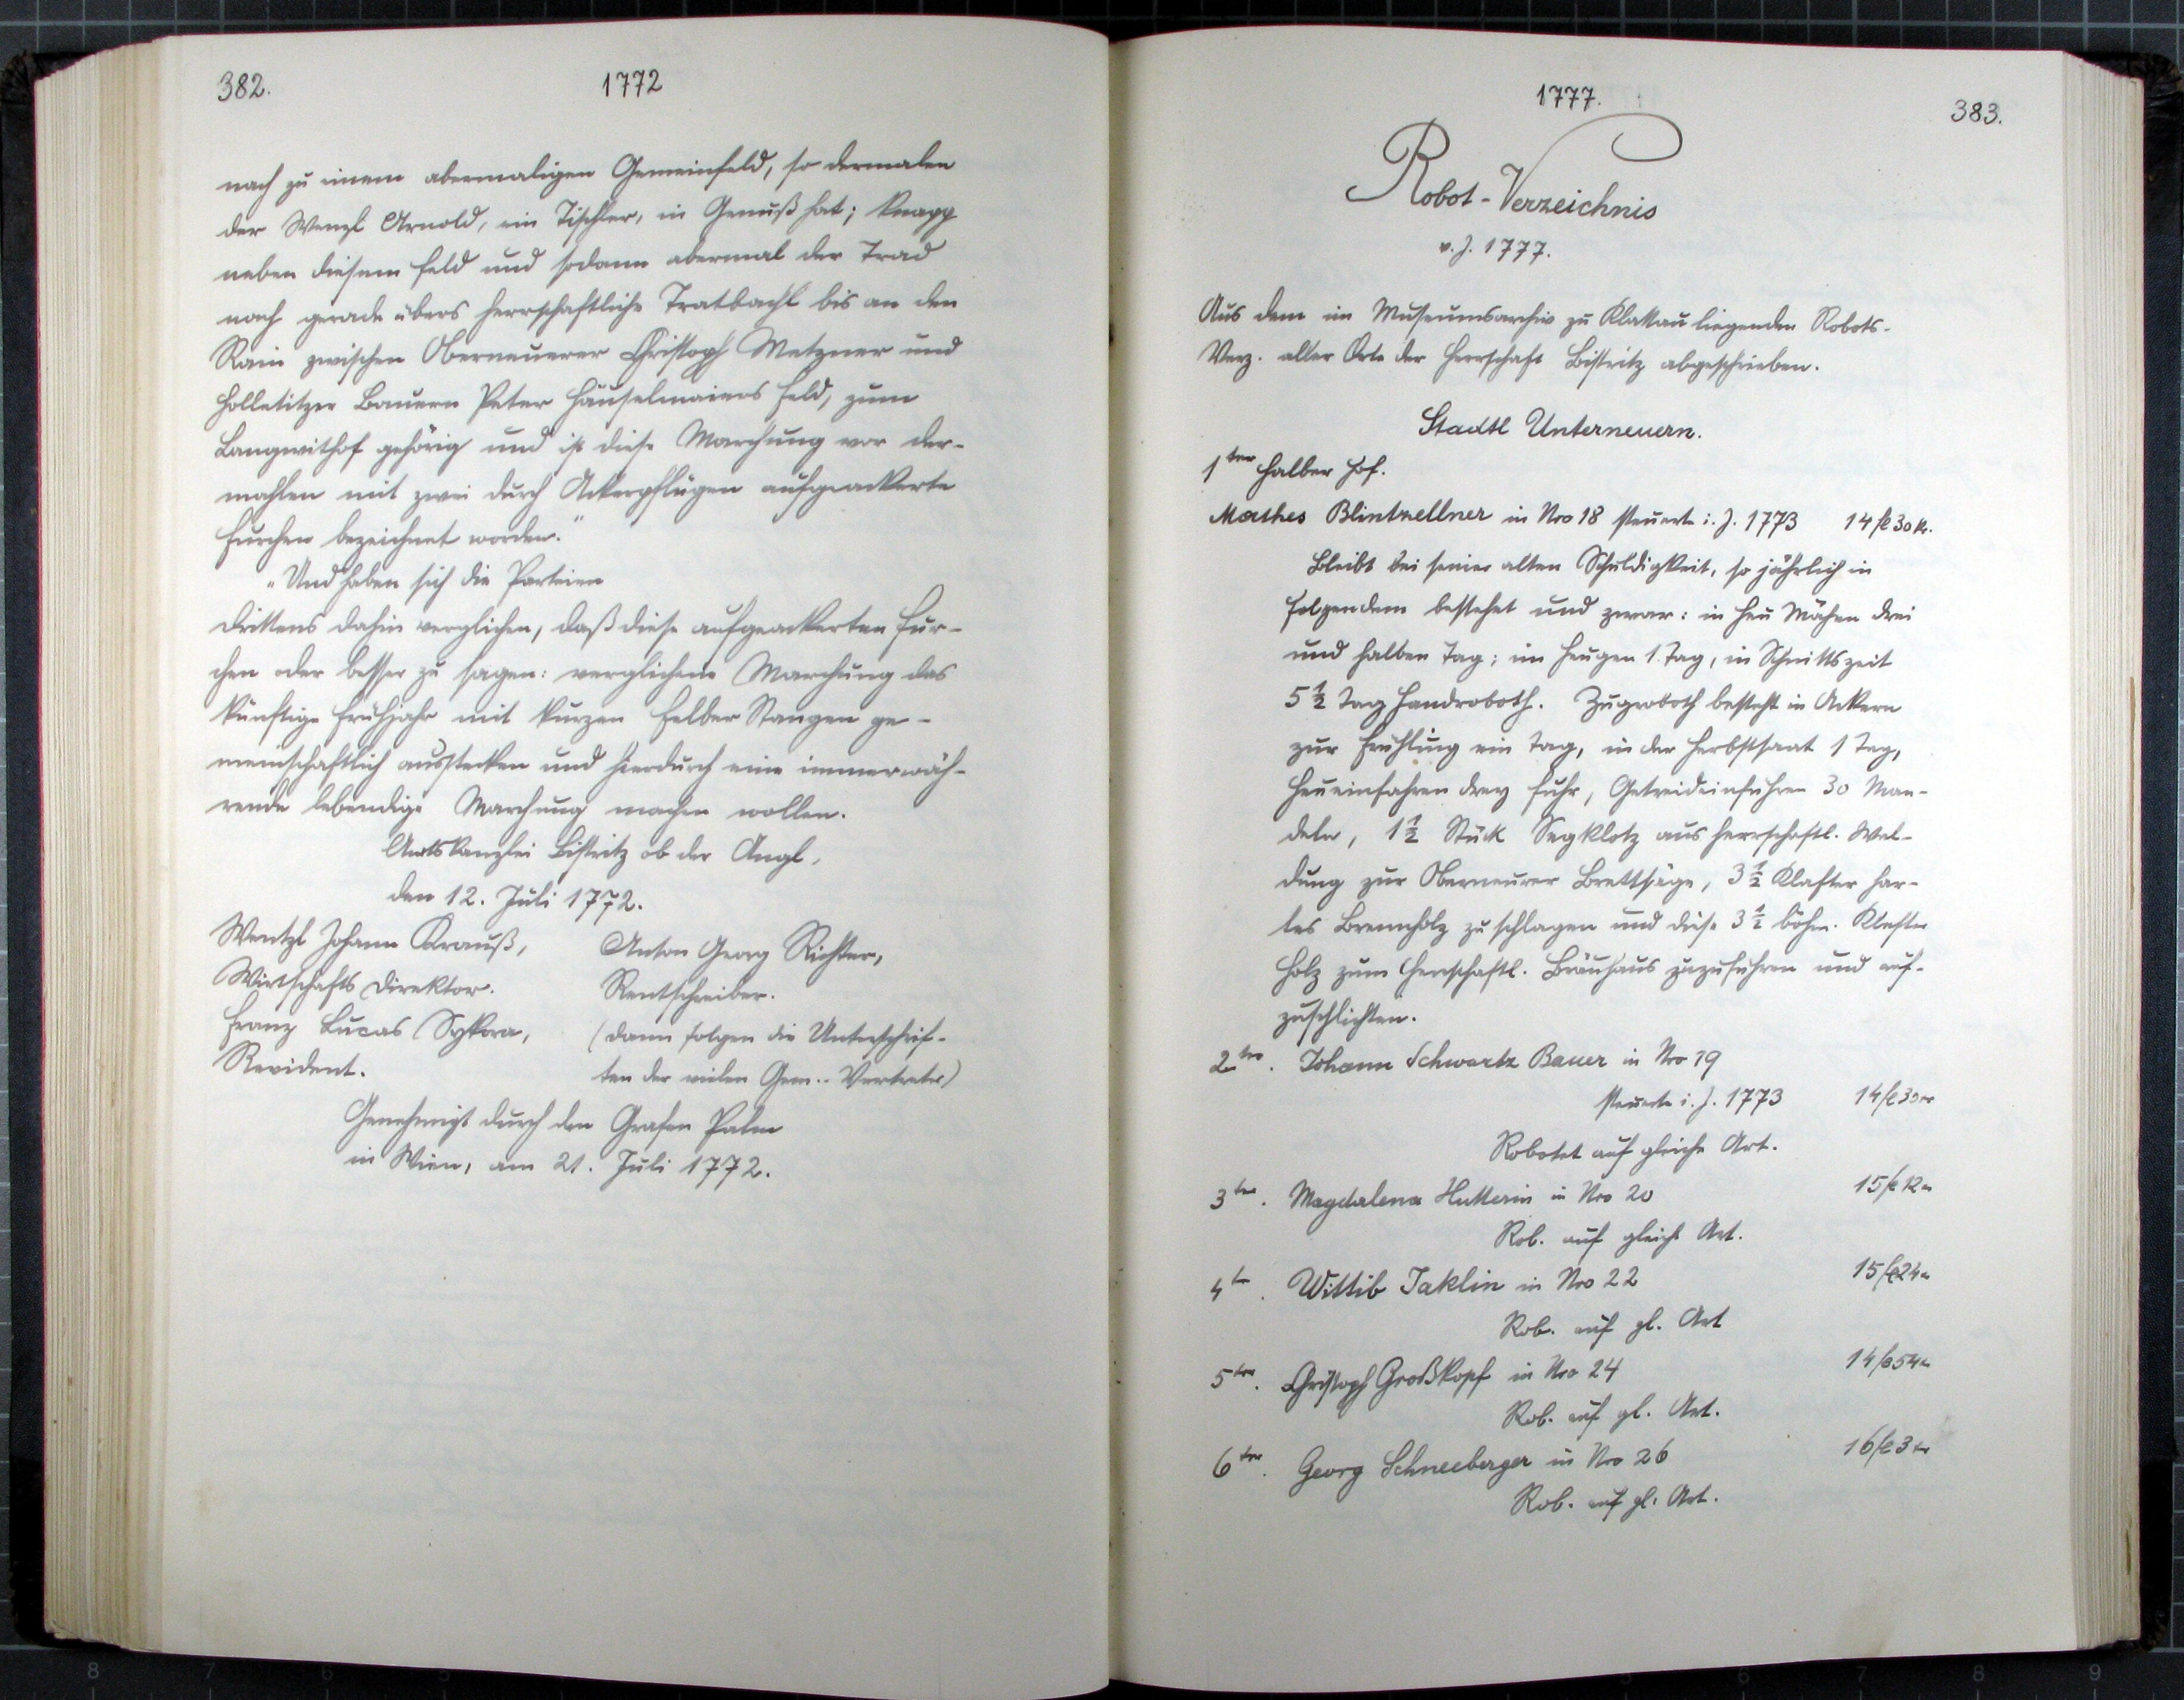 382.
1772
nach zu einem abermaligen Gemeinfeld, so dermalen
der Wenzl Arnold, ein Tischler, in Genuß hat; knapp
neben diesem Feld und sodann abermal der Trad
nach gerade übers herrschaftliche Tratbachl bis an den
Rain zwischen Oberneuerer Christoph Metzner und
Holletitzer Bauern Peter Häuselmaiers Feld, zum
Langwithof gehörig und ist diese Marchung vor der-
mahlen mit zwei durch Ackerpflügen aufgeackerte
Furchen bezeichnet worden."
"Und haben sich die Parteien
drittens dahin verglichen, daß diese aufgeackerten Fur-
chen oder besser zu sagen: verglichene Marchung das
künftige Frühjahr mit kurzen Felber Stangen ge-
meinschaftlich ausstecken und hierdurch eine immerwäh-
rende lebendige Marchung machen wollen.
Amtskanzlei Bistritz ob der Angl,
den 12. Juli 1772.
Wentzl Johann Krauß,
Wirtschafts Direktor.
Franz Lucas Sykora,
Revident.
Anton Georg Richter,
Rentschreiber.
(dann folgen die Unterschrif-
ten der vielen Gem.-Vertreter)
Genehmigt durch den Grafen Palm
in Wien, am 21. Juli 1772.
1777.
383.
Robot-Verzeichnis
v. J. 1777.
Aus dem im Museumsarchiv zu Klattau liegenden Robots-
Verz. aller Orte der Herrschaft Bistritz abgeschrieben.
Stadtl Unterneuern.
1ter halber Hof.
Mathes Blintzellner in Nro 18 steuerte i. J. 1773 14 fl 30 kr.
Bleibt bei seiner alten Schuldigkeit, so jährlich in
folgendem bestehet und zwar: in Heu Mähen drei
und halben Tag; im Heugen 1. Tag, in Schnittszeit
5 ½ Tag Handroboth. Zugroboth besteht in Ackern
zur Frühling ein Tag, in der Herbstsaat 1 Tag,
Heueinfahren drey Fuhr, Getreideinführen 30 Man-
deln, 1 ½ Stück Segklotz aus herrschaftl. Wal-
dung zur Oberneurer Brettsäge, 3 ½ Klafter har-
tes Brennholz zu schlagen und diese 3 ½ böhm. Klafter
Holz zum herrschaftl. Bräuhaus zuzuführen und auf-
zuschlichten.
2ter. Johann Schwartz Bauer in Nro 19
steuerte i. J. 1773 14 fl 30 kr
Robotet auf gleiche Art.
3ter. Magdalena Hutterin in Nro 20 15 fl 12 kr
Rob. auf gleiche Art.
4ter. Wittib Jaklin in Nro 22 15 fl 24 kr
Rob. auf gl. Art
5ter. Christoph Großkopf in Nro 24 14 fl 54 kr
Rob. auf gl. Art.
6ter. Georg Schneeberger in Nro 26 16 fl 3 kr
Rob. auf gl. Art.
8 7 6 5
5 6 7 8 9